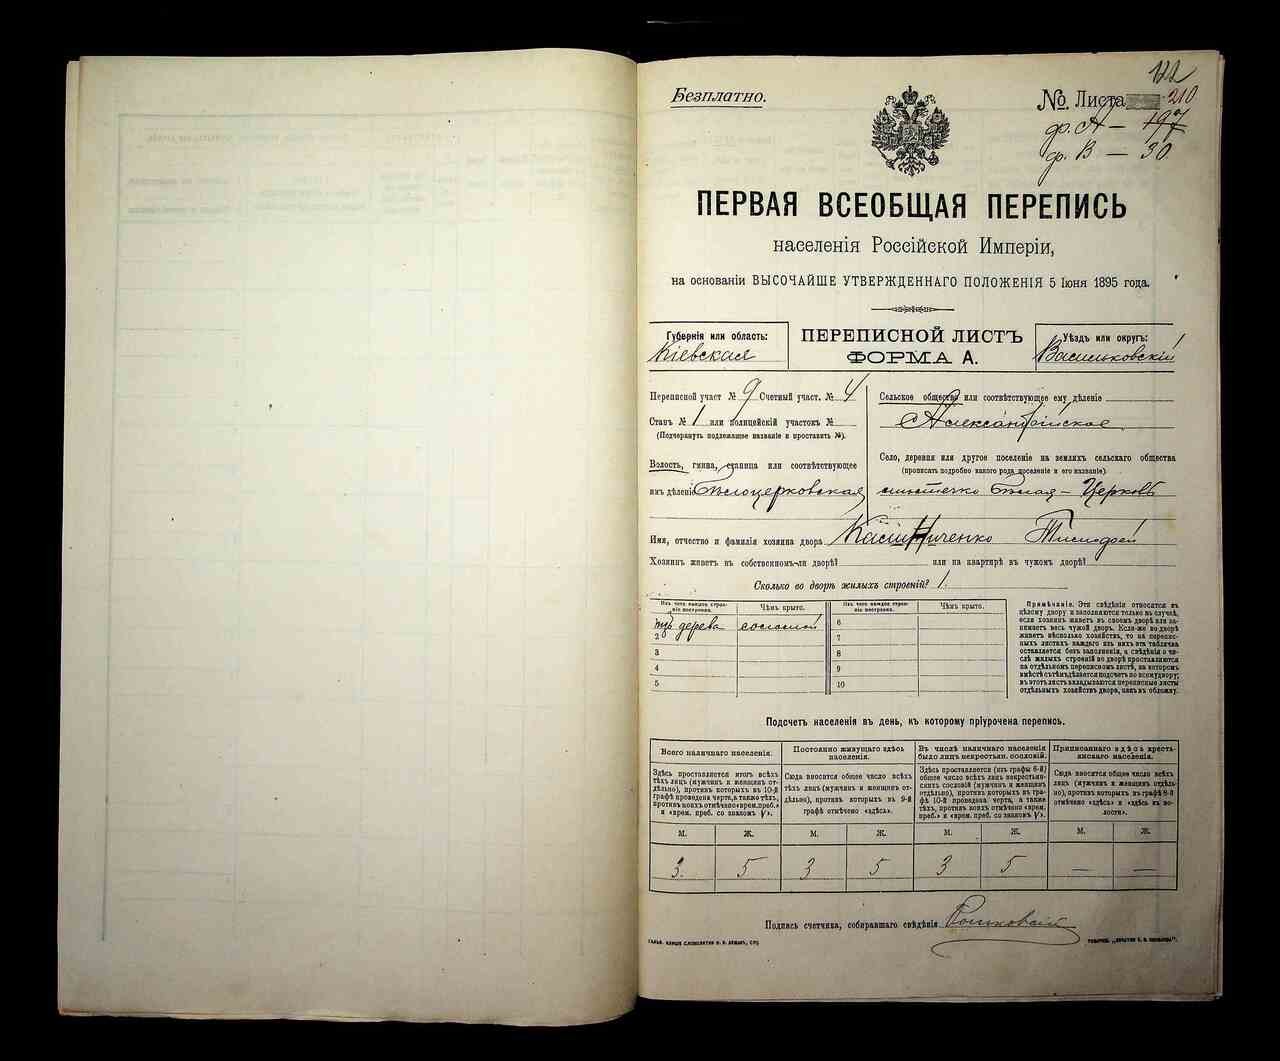 122
Безплатно.
№ Листа 210
ф. А — 197
ф. В — 30
ПЕРВАЯ ВСЕОБЩАЯ ПЕРЕПИСЬ
населенія Россійской Имперіи,
на основаніи ВЫСОЧАЙШЕ УТВЕРЖДЕННАГО ПОЛОЖЕНІЯ 5 Іюня 1895 года.
Губернія или область:
Кіевская
ПЕРЕПИСНОЙ ЛИСТЪ
ФОРМА А.
Уѣздъ или округъ:
Васильковскій
Переписной участ № 9 Счетный участ. № 4
Станъ № 1 или полицейскій участокъ №
(Подчеркнуть подлежащее названіе и проставить №).
Волость, гмина, станица или соотвѣтствующее
имъ дѣленіе Бѣлоцерковская
Сельское общество или соотвѣтствующее ему дѣленіе
Александрійское
Село, деревня или другое поселеніе на земляхъ сельскаго общества
(прописать подробно какого рода поселеніе и его названіе)
мѣстечко Бѣлая-Церковь
Имя, отчество и фамилія хозяина двора
Хозяинъ живетъ въ собственномъ-ли дворѣ? или на квартирѣ въ чужомъ дворѣ?
Сколько во дворѣ жилыхъ строеній? 1.
Изъ чего каждое строеніе построено.
Чѣмъ крыто.
Изъ чего каждое строеніе построено.
Чѣмъ крыто.
изъ дерева соломой
2
3
4
5
6
7
8
9
10
Примѣчаніе. Эти свѣдѣнія относятся къ
цѣлому двору и заполняются только въ случаѣ,
если хозяинъ живетъ въ своемъ дворѣ или занимаетъ
весь чужой дворъ. Если-же во дворѣ
живетъ нѣсколько хозяйствъ, то на переписныхъ
листахъ каждаго изъ нихъ эта табличка
оставляется безъ заполненія, а свѣдѣнія о числѣ
жилыхъ строеній во дворѣ проставляются
на отдѣльномъ переписномъ листѣ, на которомъ
вмѣстѣ съ тѣмъ дѣлается подсчетъ по всему двору;
въ этотъ листъ вкладываются переписные листы
отдѣльныхъ хозяйствъ двора, какъ въ обложку.
Подсчетъ населенія въ день, къ которому пріурочена перепись.
Всего наличнаго населенія.
Здѣсь проставляется итогъ всѣхъ
тѣхъ лицъ (мужчинъ и женщинъ отдѣльно),
противъ которыхъ въ 10-й
графѣ проведена черта, а также тѣхъ,
противъ коихъ отмѣчено «врем. преб.»
и «врем. преб. со знакомъ V».
Постоянно живущаго здѣсь
населенія.
Сюда вносится общее число всѣхъ
тѣхъ лицъ (мужчинъ и женщинъ отдѣльно),
противъ которыхъ въ 9-й
графѣ отмѣчено «здѣсь».
Въ числѣ наличнаго населенія
было лицъ некрестьян. сословій.
Здѣсь проставляется (изъ графы 6-й)
общее число всѣхъ лицъ некрестьянскихъ
сословій (мужчинъ и женщинъ
отдѣльно), противъ которыхъ въ графѣ
10-й проведена черта, а также
тѣхъ, противъ коихъ отмѣчено «врем.
преб.» и «врем. преб. со знаком. V».
Приписаннаго здѣсь крестьянскаго
населенія.
Сюда вносится общее число всѣхъ
лицъ (мужчинъ и женщинъ отдѣльно),
противъ которыхъ въ графѣ 8-й
отмѣчено «здѣсь» и «здѣсь въ волости».
М. Ж. М. Ж. М. Ж. М. Ж.
3 5 3 5 3 5 — —
Подпись счетчика, собиравшаго свѣдѣнія